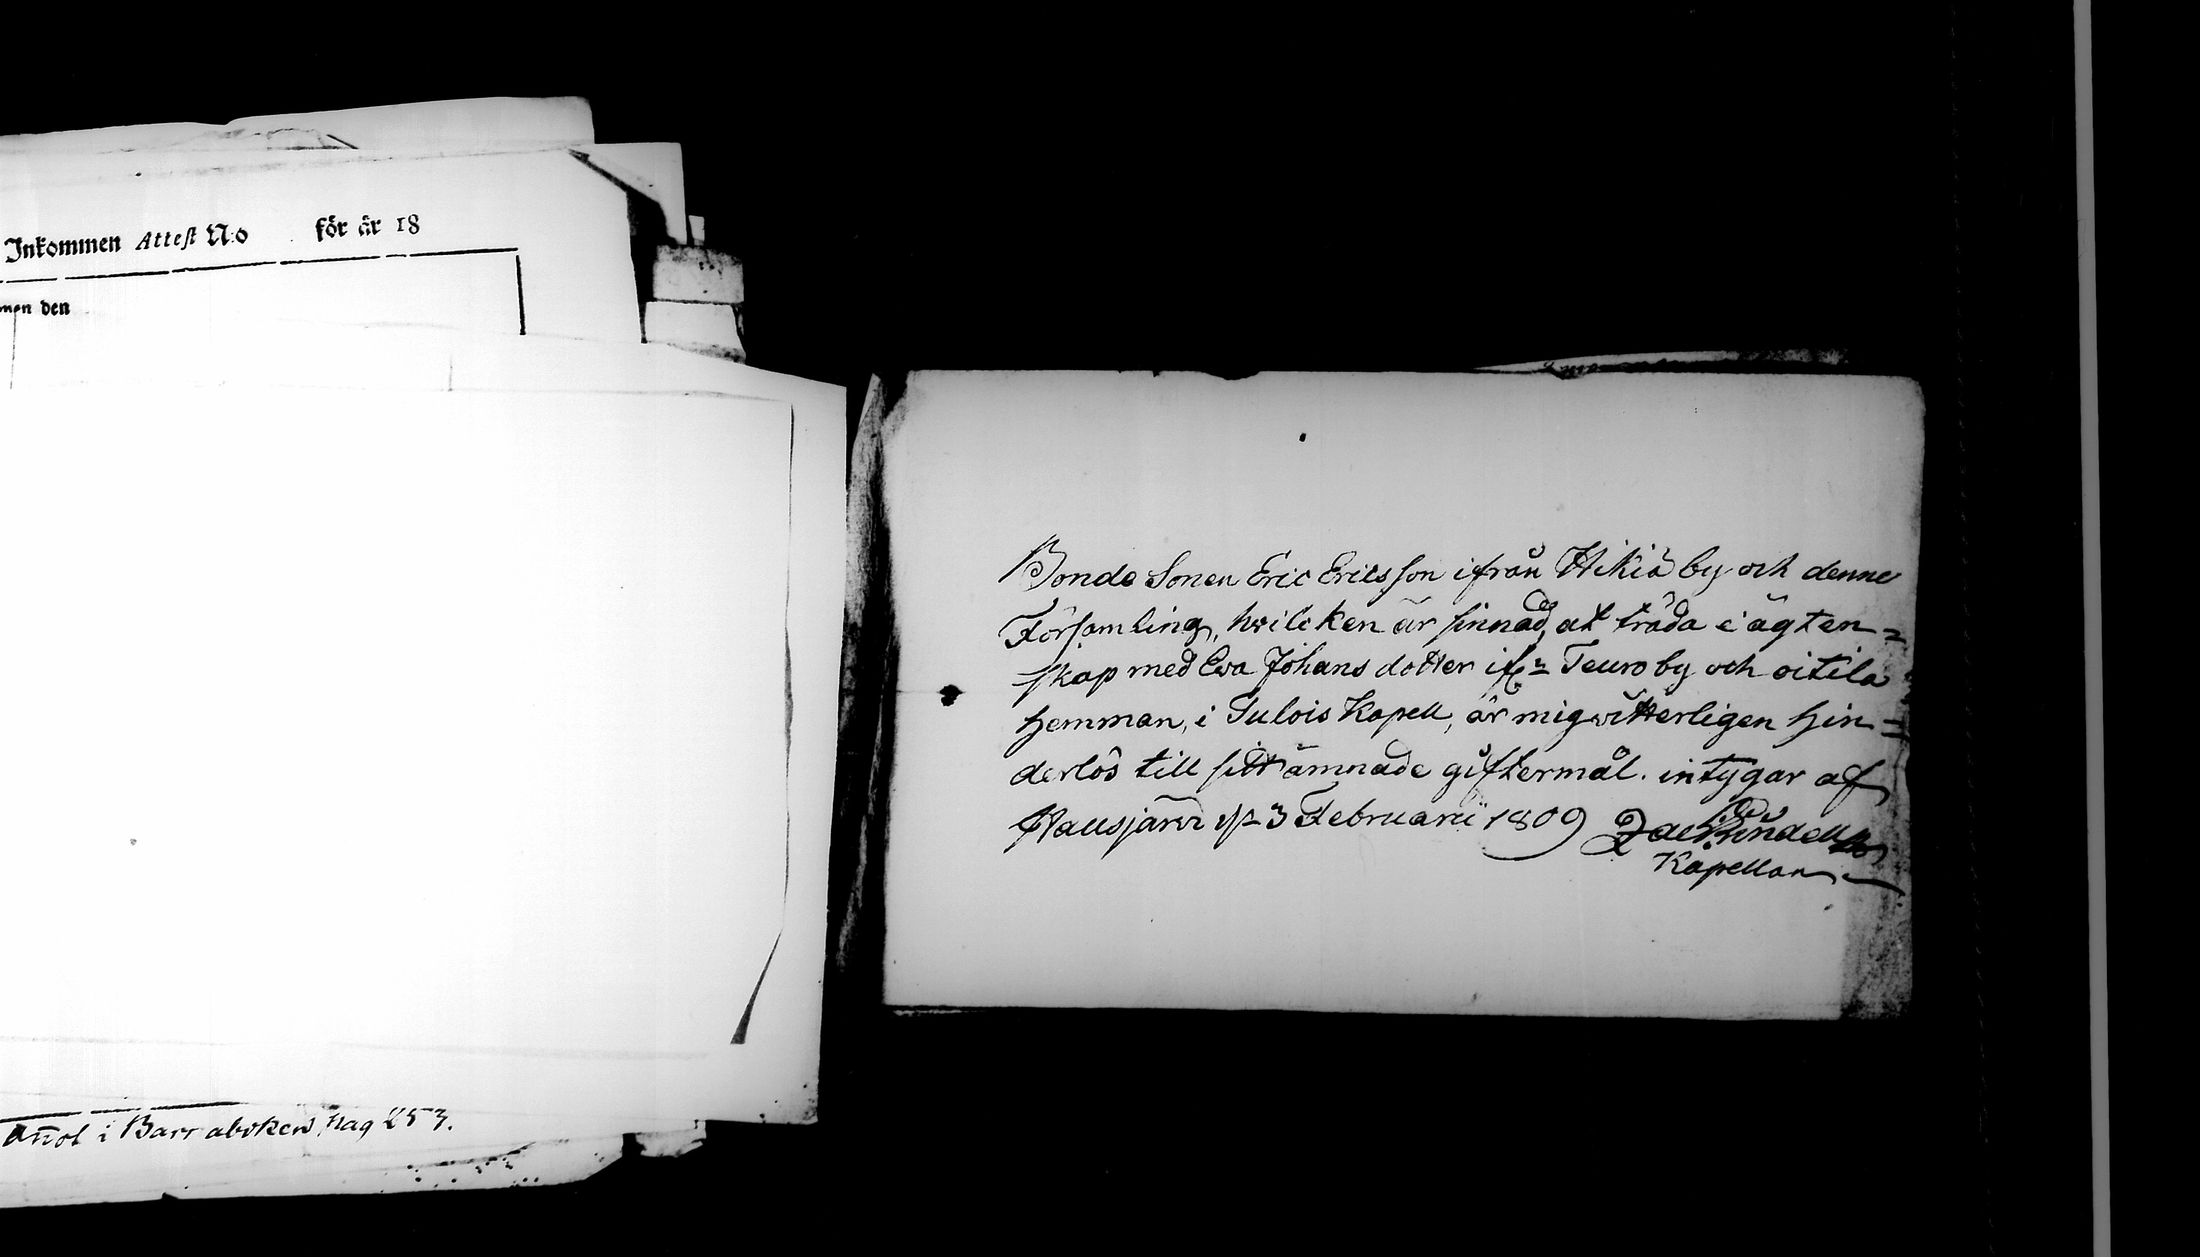 Inkommen Attest N:o för år 18
den
Bonde Sonen Eric Ericsson ifrån Hikiä by och denne
Församling, hvilcken är sinnad, at träda i ägten=
skap med Eva Johans dotter ifr: Teuro by och oitila
hemman, i Tulois Kapell, är mig vitterligen hin=
derlös till sitt ämnade giftermål. intygar af
Hausjärvi d. 3 Februarii 1809
Kapellan
i Barnaboken pag 253.